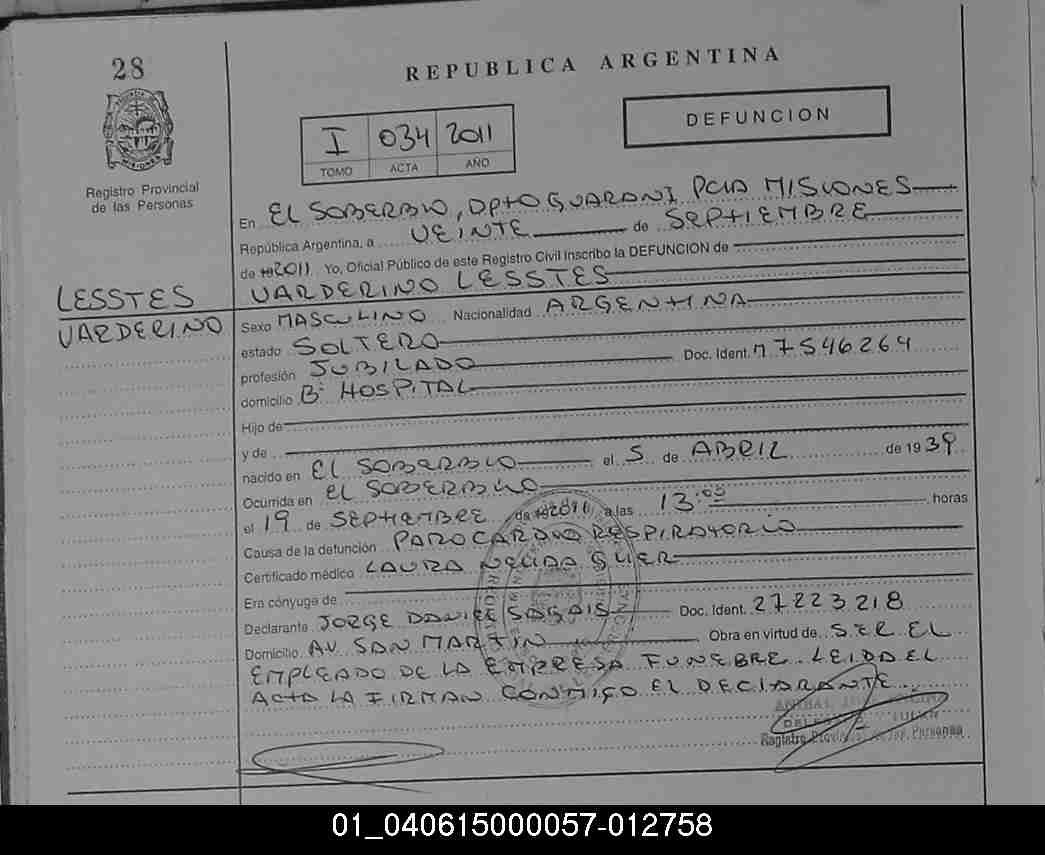 28
REPUBLICA ARGENTINA
DEFUNCION
I 034 2011
TOMO ACTA AÑO
MISIONES
Registro Provincial
de las Personas
En EL SOBERBIO, DPTO GUARANI PCIA MISIONES
República Argentina, a VEINTE de SEPTIEMBRE
de 19 2011 Yo, Oficial Público de este Registro Civil Inscribo la DEFUNCION de
LESSTES VARDERINO LESSTES
VARDERINO Sexo MASCULINO Nacionalidad ARGENTINA
estado SOLTERO
profesión JUBILADO Doc. Ident. M 7546264
domicilio Bº HOSPITAL
Hijo de
y de
nacido en EL SOBERBIO el 5 de ABRIL de 1939
Ocurrida en EL SOBERBIO
el 19 de SEPTIEMBRE de 19 2011 a las 13:00 horas
Causa de la defunción PARO CARDIO RESPIRATORIO
Certificado médico LAURA NELIDA
Era cónyuge de
Declarante JORGE DANIEL Doc. Ident. 27223218
Domicilio AV. SAN MARTIN Obra en virtud de SER EL
EMPLEADO DE LA EMPRESA FUNEBRE LEIDA EL
ACTA LA FIRMAN CONMIGO EL DECLARANTE
ANIBAL
Registro Provincial de las Personas
01_040615000057-012758